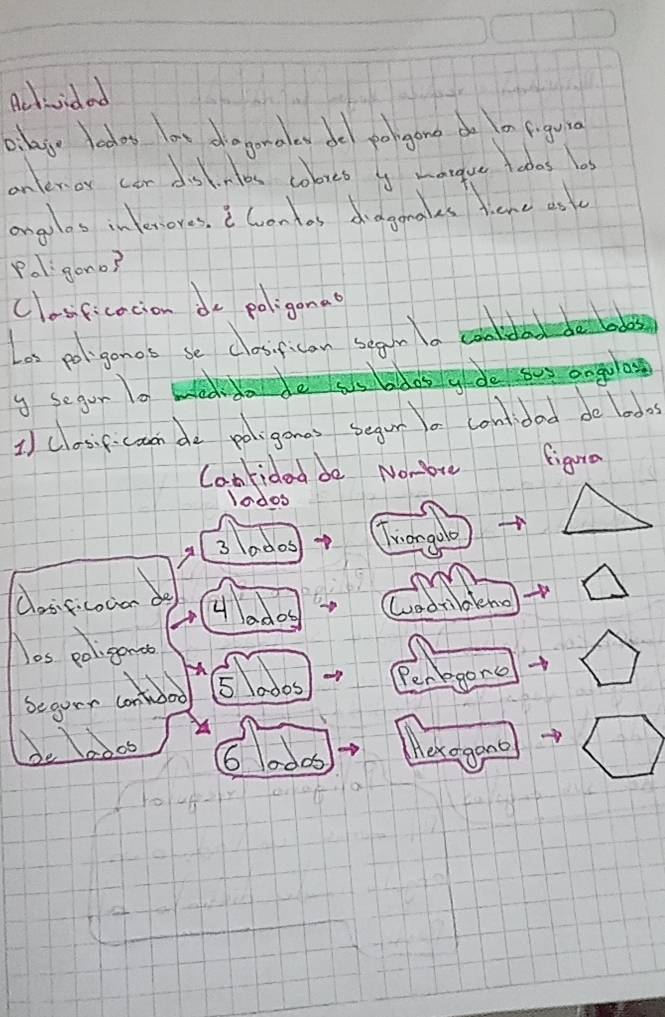 Actividad
Dibuje todos las diagonales del poligono de la figura
anterior con distintos colores y marque todos los
angulos interiores. ¿Cuantos diagonales tiene este
Poligono?
Clasificacion de poligonos
Los poligonos se clasifican segun la cantidad de lados
y segun la medida de sus lados y de sus angulos
1) Clasificacion de poligonos segun la cantidad de lados
Cantidad de lados Nombre figura
3 lados Triangulo
4 lados Cuadrilatero
5 lados Pentagono
6 lados Hexagono
Clasificacion de
los poligonos
segunn cantidad
de lados